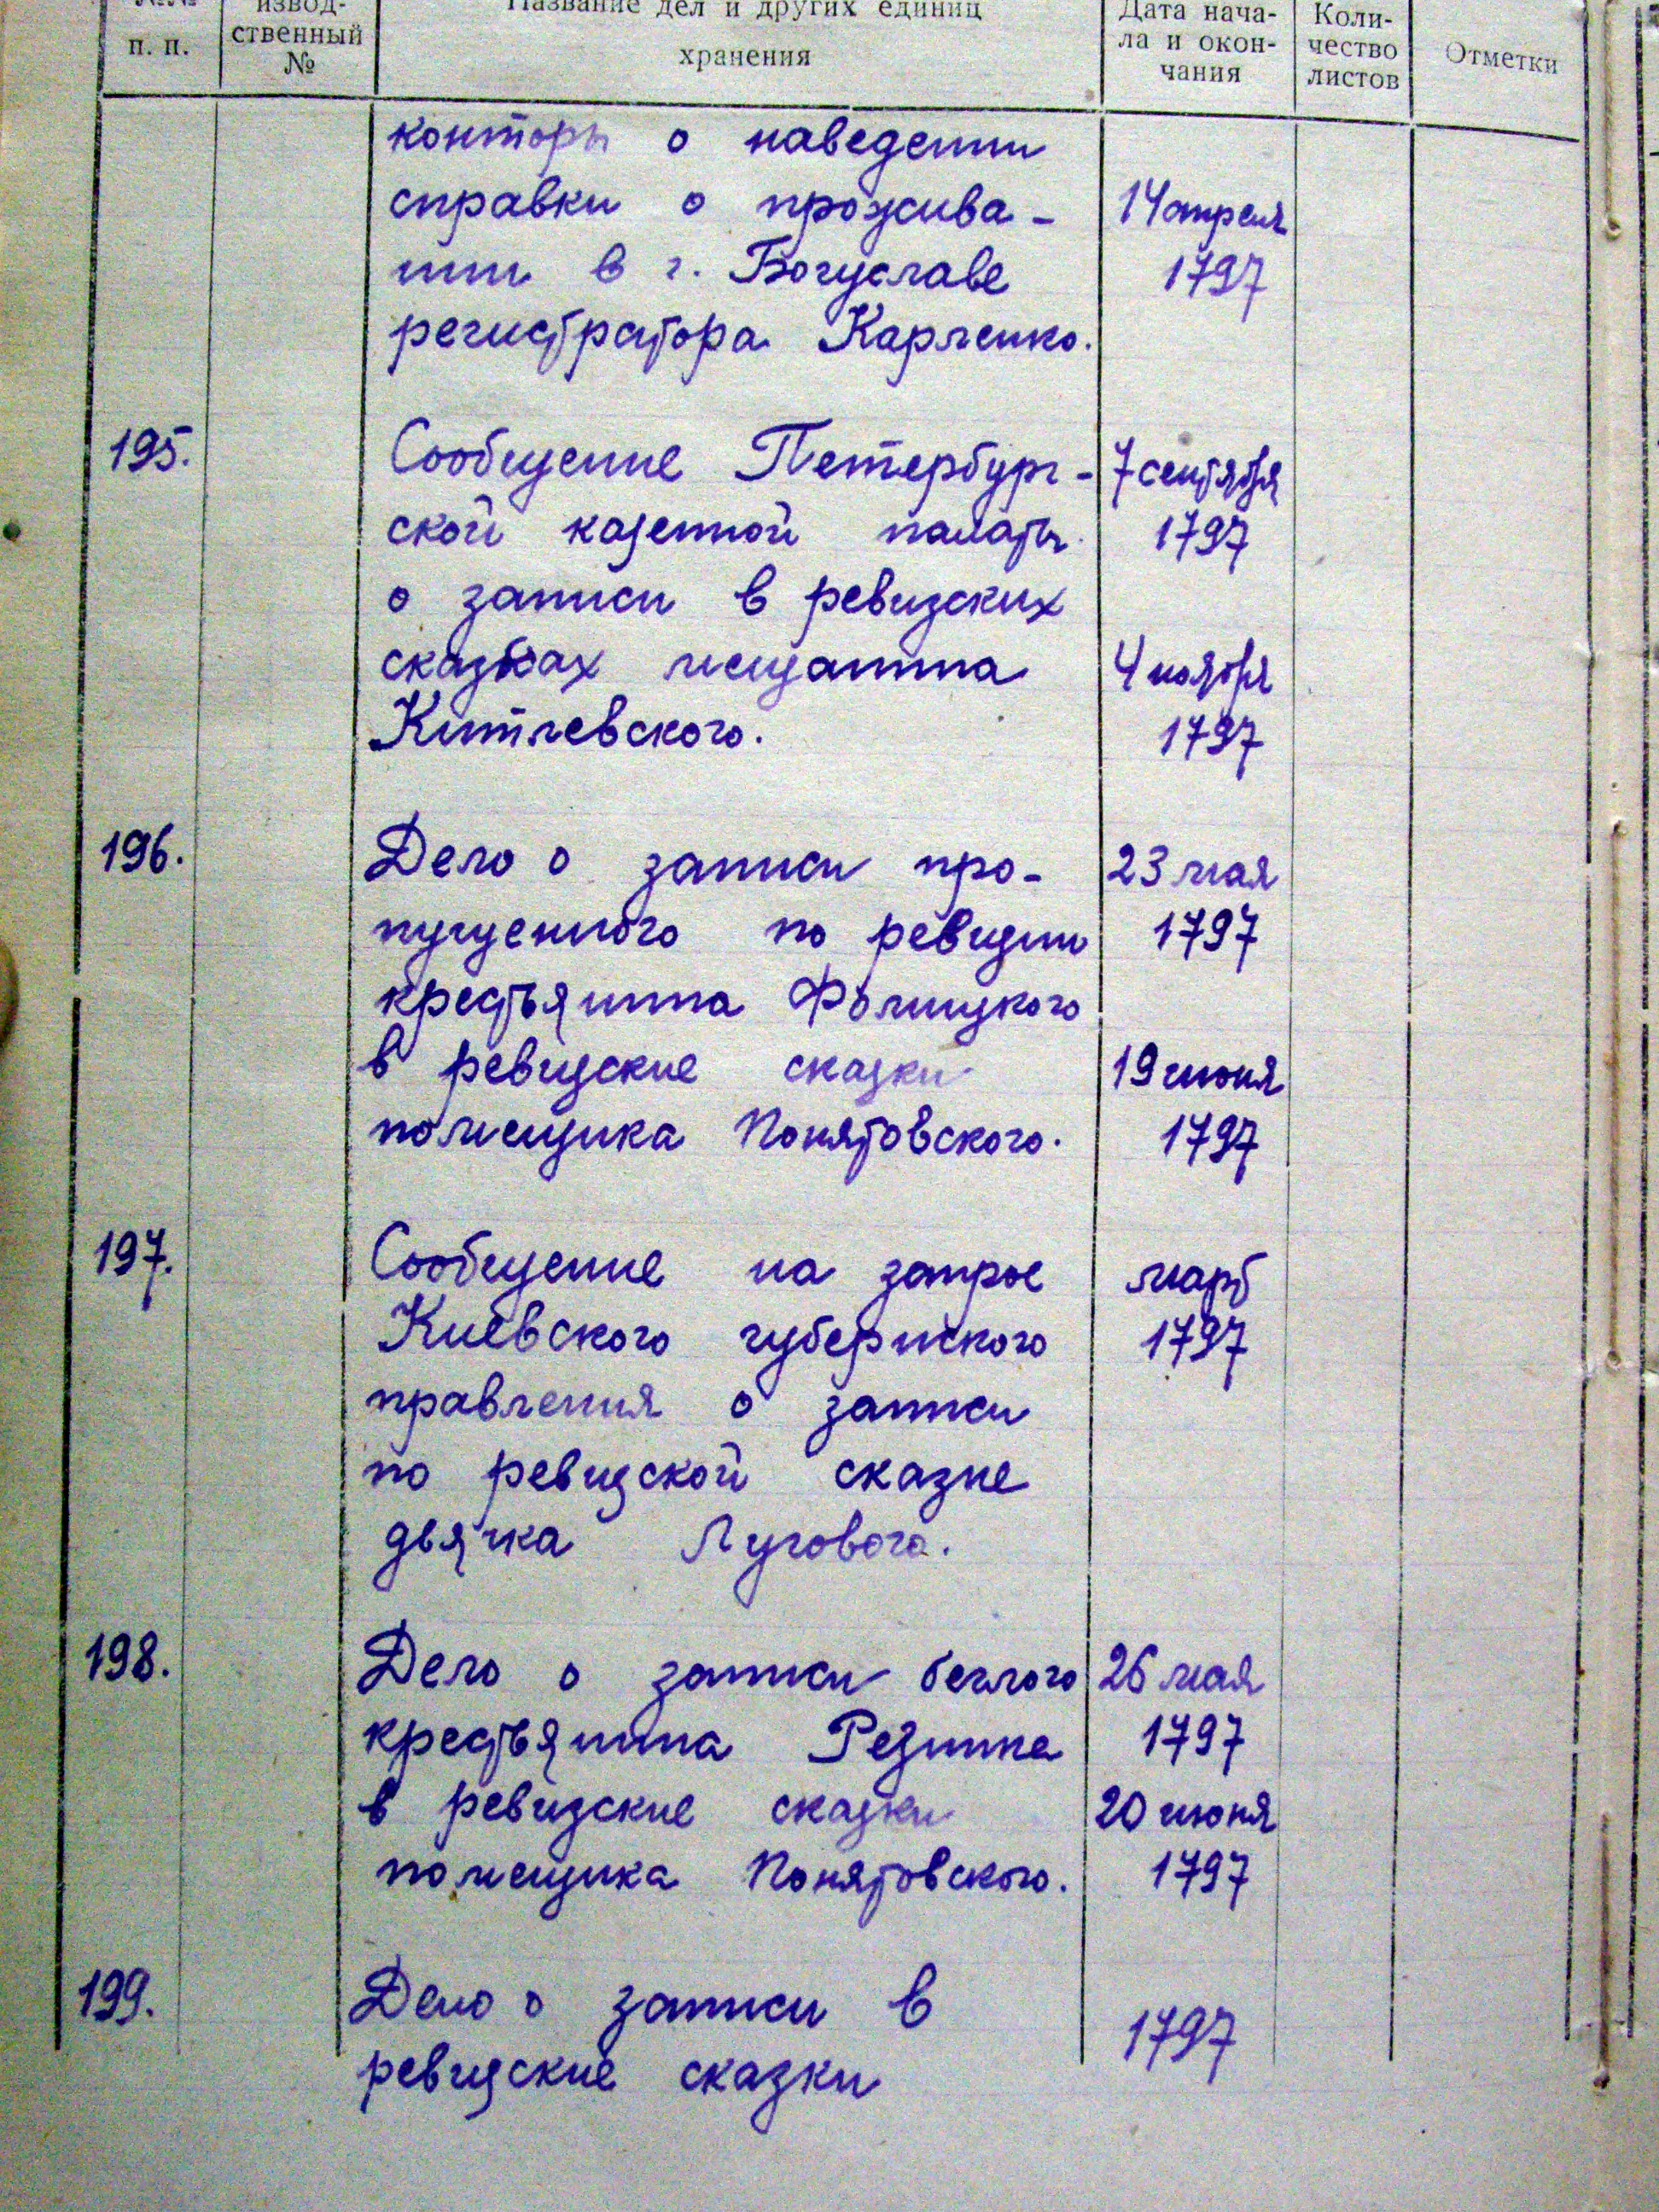 №№ извод- Название дел и других единиц Дата нача- Коли-
п. п. ственный хранения ла и окон- чество Отметки
№ чания листов
конторы о наведении
справки о прожива- 14 апреля
нии в г. Богуславе 1797
регистратора Карпенко.
195. Сообщение Петербург- 7 сентября
ской казенной палаты 1797
о записи в ревизских
сказках мещанина 4 ноября
Китлевского. 1797
196. Дело о записи про- 23 мая
пущенного по ревизии 1797
крестьянина Фолицкого
в ревизские сказки 19 июня
помещика Понятовского. 1797
197. Сообщение на запрос март
Киевского губернского 1797
правления о записи
по ревизской сказке
дьячка Лугового.
198. Дело о записи беглого 26 мая
крестьянина Резника 1797
в ревизские сказки 20 июня
помещика Понятовского. 1797
199. Дело о записи в 1797
ревизские сказки